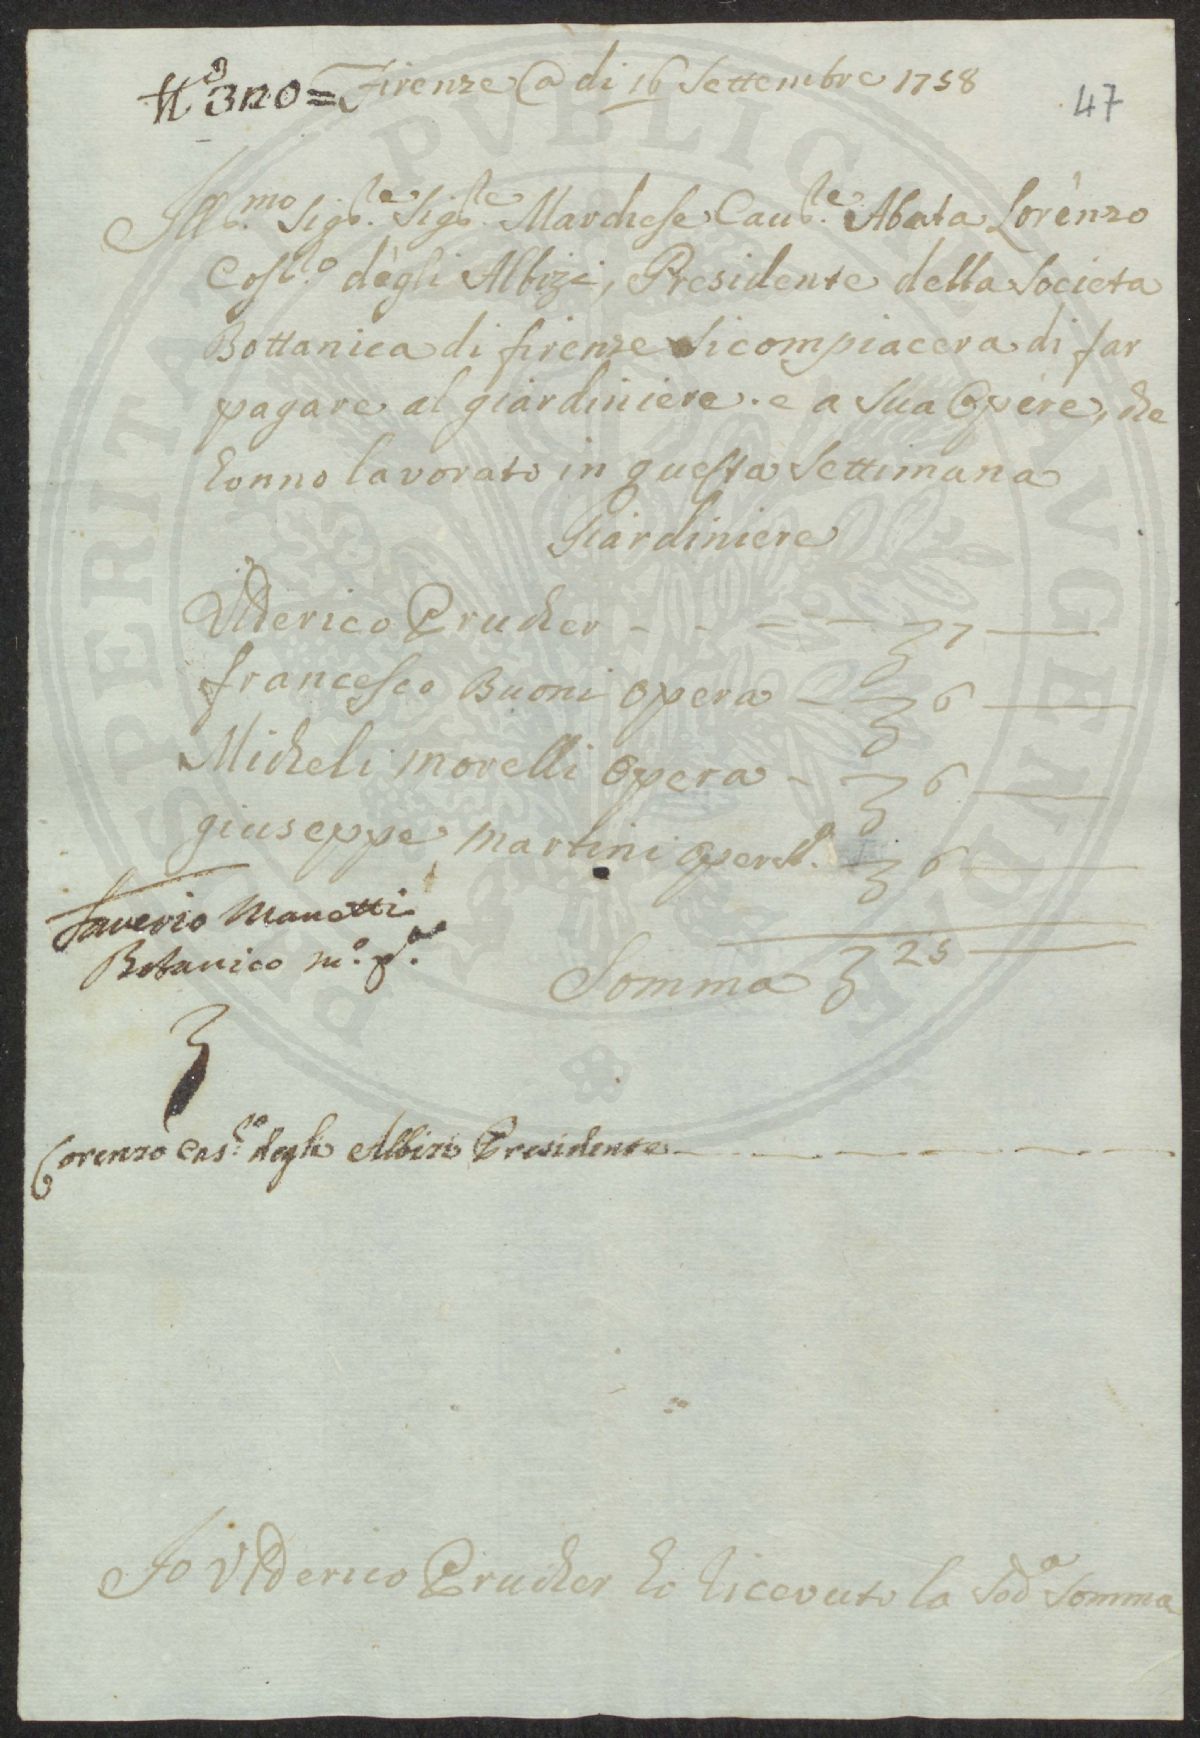 N.º 320 = Firenze a di 16 Settembre 1758
47
Ill.mo Sig.re Sig.re Marchese Cau.re Abata Lorenzo
Cos.lo degli Albizi, Presidente della Societa
Bottanica di firenze si compiacera di far
pagare al giardiniere e a sua Opere, che
honno lavorato in questa Settimana
Giardiniere
Vlderico Prucher - - - - 7 —
francesco Buoni opera - 6 —
Micheli morelli opera - 6 —
giuseppe martini opera 6 —
Saverio Manetti
Botanico m.o p.a
Somma 25 —
Lorenzo Cos.lo degli Albizi Presidente
Io Vlderico Prucher ho ricevuto la Sod.a Somma
PVBLICAE
PROSPERITATI
AVGENDAE